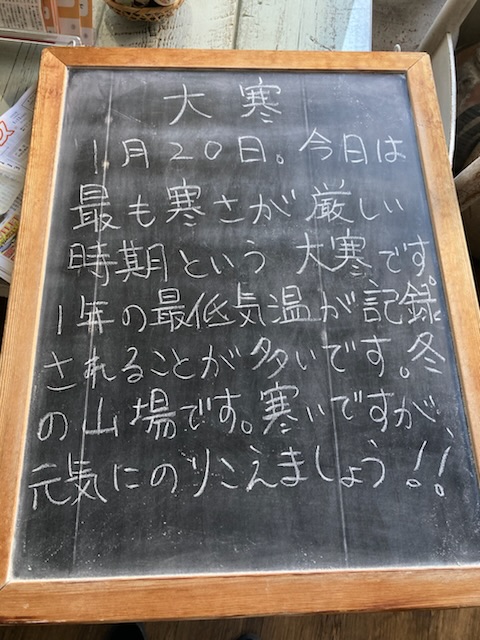 大寒
1月20日。今日は
最も寒さが厳しい
時期という大寒です。
1年の最低気温が記録
されることが多いです。冬
の山場です。寒いですが、
元気にのりこえましょう!!